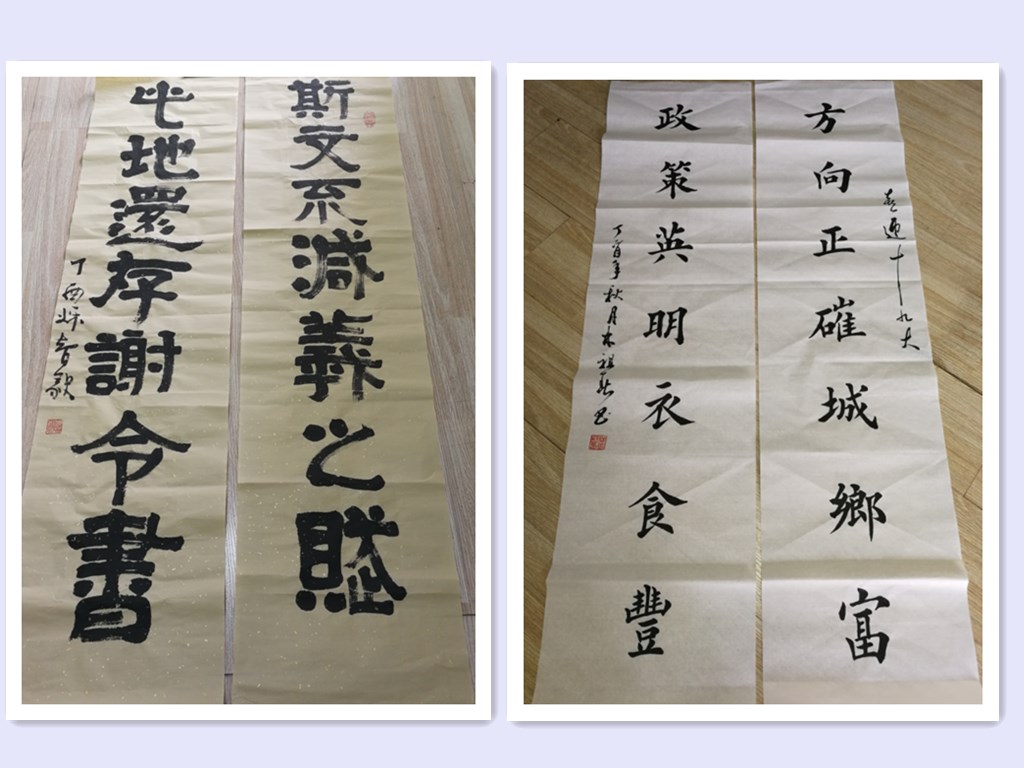 斯文不減羲之賦
此地還存謝令書
丁酉
喜迎十九大
方向正確城鄉富
政策英明衣食豐
丁酉年秋月